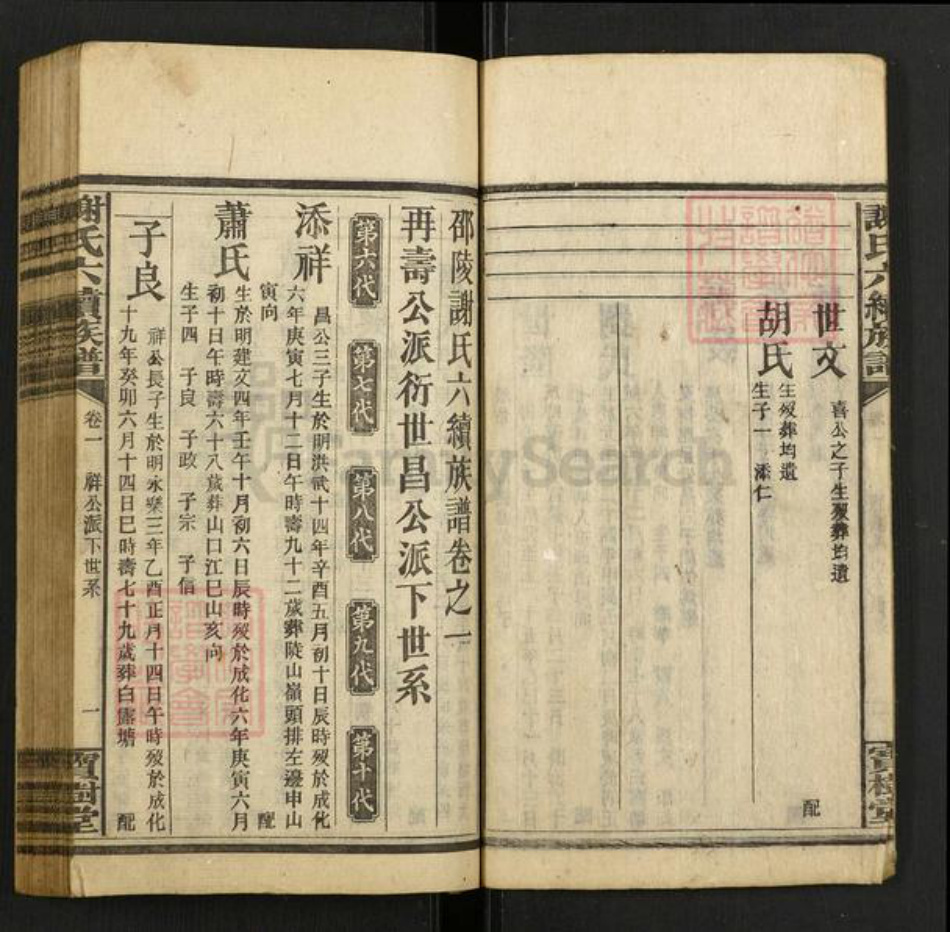 世文
喜公之子生歿葬均遺
配
胡氏
生歿葬均遺
生子一 添仁
邵陵謝氏六續族譜卷之一
再壽公派衍世昌公派下世系
第六代 第七代 第八代 第九代 第十代
添祥
昌公三子生於明洪武十四年辛酉五月初十日辰時歿於成化
六年庚寅七月十二日午時壽九十二歲葬陡山嶺頭排左邊申山
寅向
配
蕭氏
生於明建文四年壬午十月初六日辰時歿於成化六年庚寅六月
初十日午時壽六十八歲葬山口江巳山亥向
生子四 子良 子政 子宗 子信
子良
祥公長子生於明永樂三年乙酉正月十四日午時歿於成化
十九年癸卯六月十四日巳時壽七十九歲葬白露塘
配
謝氏六續族譜
卷一
祥公派下世系
一
寶樹堂
謝氏六續族譜
寶樹堂
FamilySearch